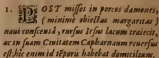 1. POST missos in porcos damones,
( minimè obiectas margaritas )
naui conscensa, rursus Iesus lacum traiecit,
ac in suam Ciuitatem Capharnaum reuersus
est, hic enim id têporis habebat domicilium.